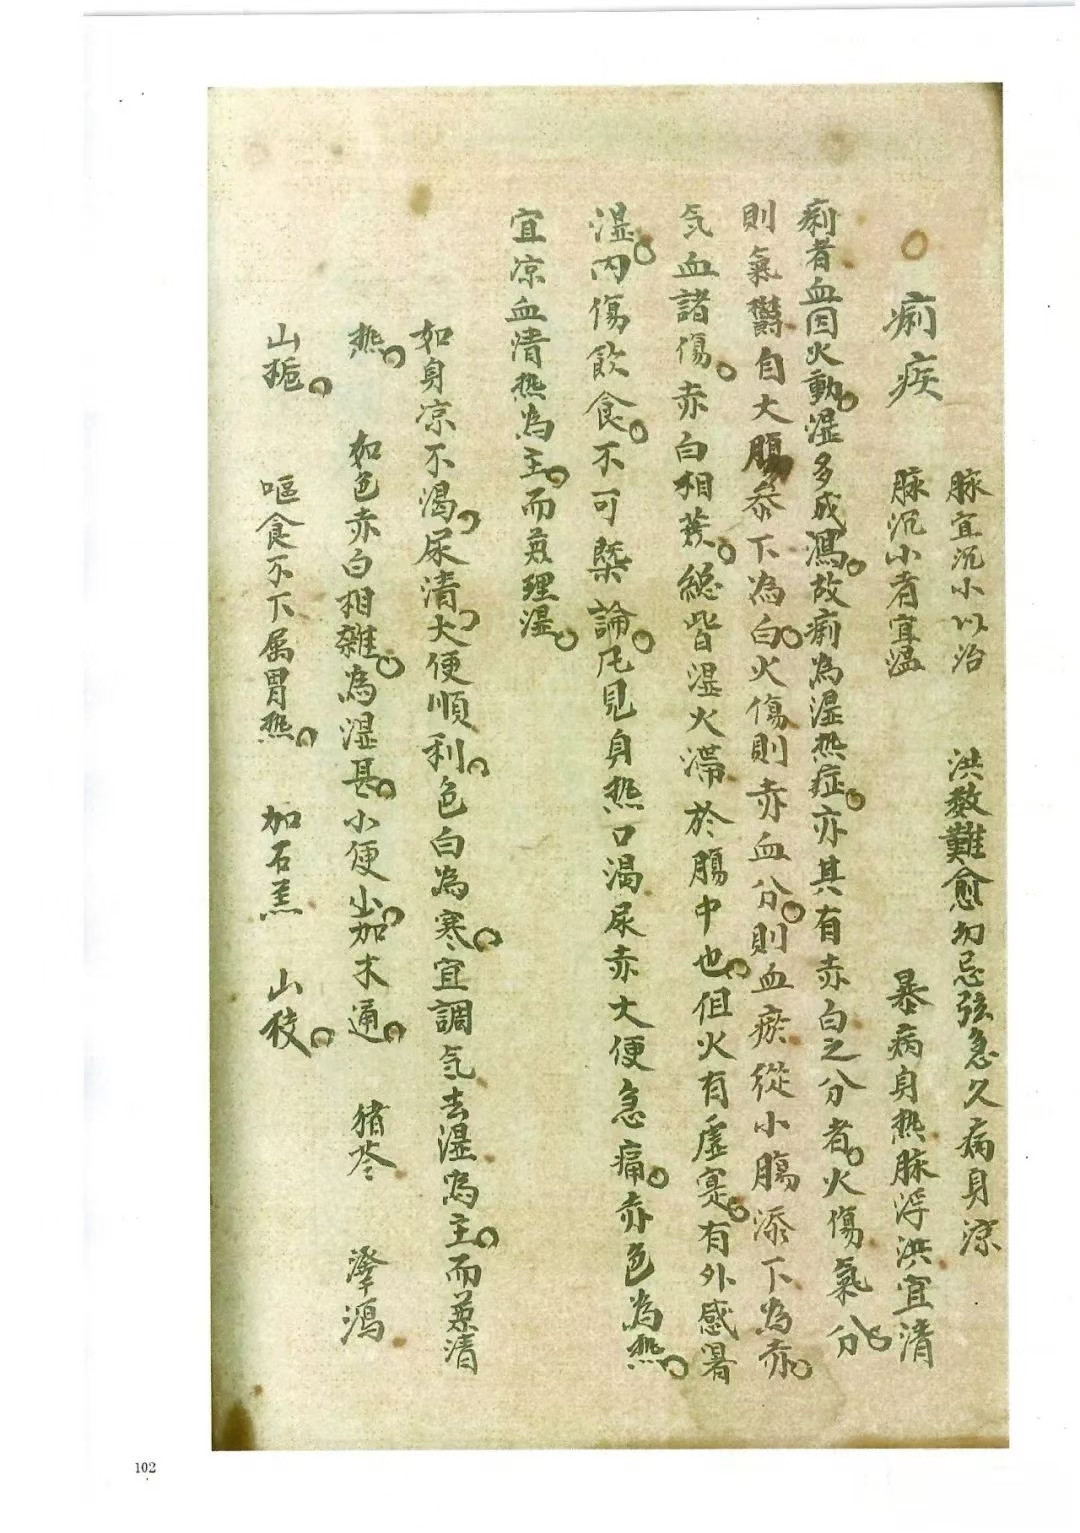 脉宜沉小以治 洪数難愈切忌弦急久病身涼
痢疾 脉沉小者宜温 暴病身热脉浮洪宜清
痢者血因火動湿多成瀉故痢為湿热症亦其有赤白之分者火傷氣分
則氣鬱自大腸恭下為白火傷則赤血分則血瘀從小腸添下為赤
気血諸傷赤白相兼總皆湿火滞於腸中也但火有虚寔有外感暑
湿内傷飲食不可槩論凡見身热口渴尿赤大便急痛赤色為热
宜凉血清热為主而兼理湿
如身凉不渴尿清大便順利色白為寒宜調気去湿為主而兼清
热 如色赤白相雜為湿甚小便少加木通 猪苓 澤瀉
山栀 嘔食不下属胃热 加石羔 山枝
102